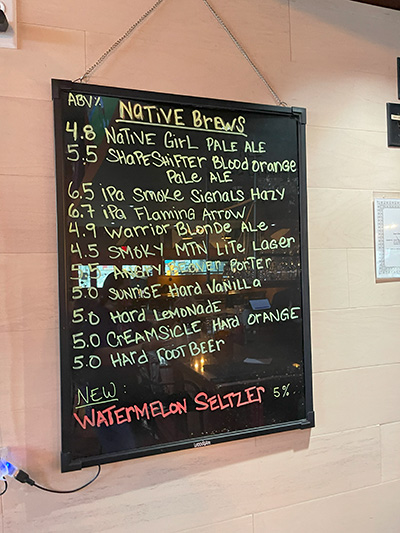 ABV%
NATIVE BREWS
4.8 NATIVE GIRL PALE ALE
5.5 SHAPESHIFTER BLOOD ORANGE
PALE ALE
6.5 iPA SMOKE SIGNALS HAZY
6.7 iPA FLAMING ARROW
4.9 WARRIOR BLONDE ALE -
4.5 SMOKY MTN LITE LAGER
5.5 ANGRY PORTER
5.0 SUNRISE HARD VANILLA
5.0 HARD LEMONADE
5.0 CREAMSICLE HARD ORANGE
5.0 HARD ROOTBEER
NEW:
WATERMELON SELTZER 5%